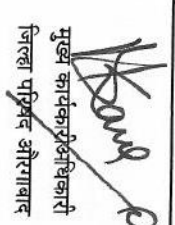 मुख्य कार्यकारी अधिकारी
जिल्हा परिषद औरंगाबाद